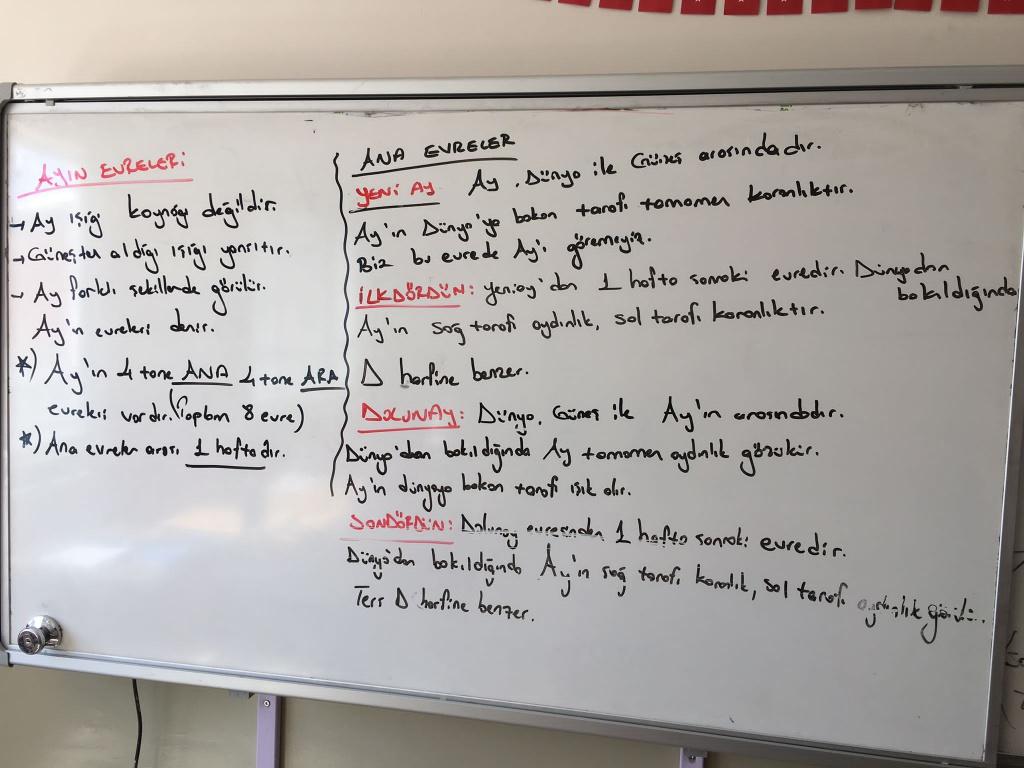 AYIN EVRELERİ
→ Ay ışığı kaynağı değildir.
→ Güneşten aldığı ışığı yansıtır.
- Ay farklı şekillerde görülür.
Ay'ın evreleri denir.
*) Ay'ın 4 tane ANA 4 tane ARA
evreleri vardır. (Toplam 8 evre)
*) Ana evreler arası 1 haftadır.
ANA EVRELER
YENİ AY Ay, Dünya ile Güneş arasındadır.
Ay'ın Dünya'ya bakan tarafı tamamen karanlıktır.
Biz bu evrede Ay'ı göremeyiz.
İLKDÖRDÜN: Yeniay'dan 1 hafta sonraki evredir. Dünyadan
bakıldığında
Ay'ın sağ tarafı aydınlık, sol tarafı karanlıktır.
D harfine benzer.
DOLUNAY: Dünya, Güneş ile Ay'ın arasındadır.
Dünya'dan bakıldığında Ay tamamen aydınlık gözükür.
Ay'ın dünyaya bakan tarafı ışık alır.
SONDÖRDÜN: Dolunay evresinden 1 hafta sonraki evredir.
Dünya'dan bakıldığında Ay'ın sağ tarafı karanlık, sol tarafı aydınlık görülür.
Ters D harfine benzer.